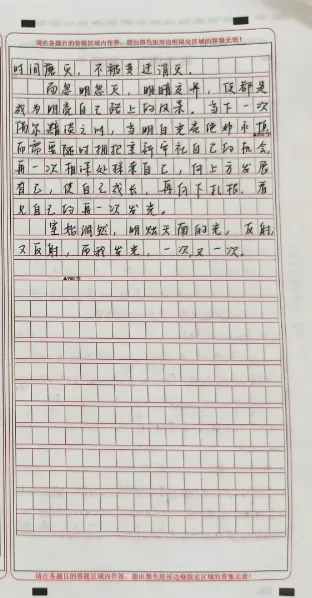 请在各题目的答题区域内作答，超出黑色矩形边框限定区域的答案无效！
时间磨灭，不被变迁消灭。
而忽明忽灭，明暗交界，仅都是
我为明亮自己路上的风景。当下一次
偶尔黯淡之时，当明白光亮绝非永恒，
而需要随时拥抱重新审视自己的机会，
再一次相深处探索自己，向上方发展
自己，使自己成长，再向下扎根，看
见自己的再一次发光。
室始洞然，明烛天南的光，反射，
又反射，而我发光，一次又一次。
请在各题目的答题区域内作答，超出黑色矩形边框限定区域的答案无效！